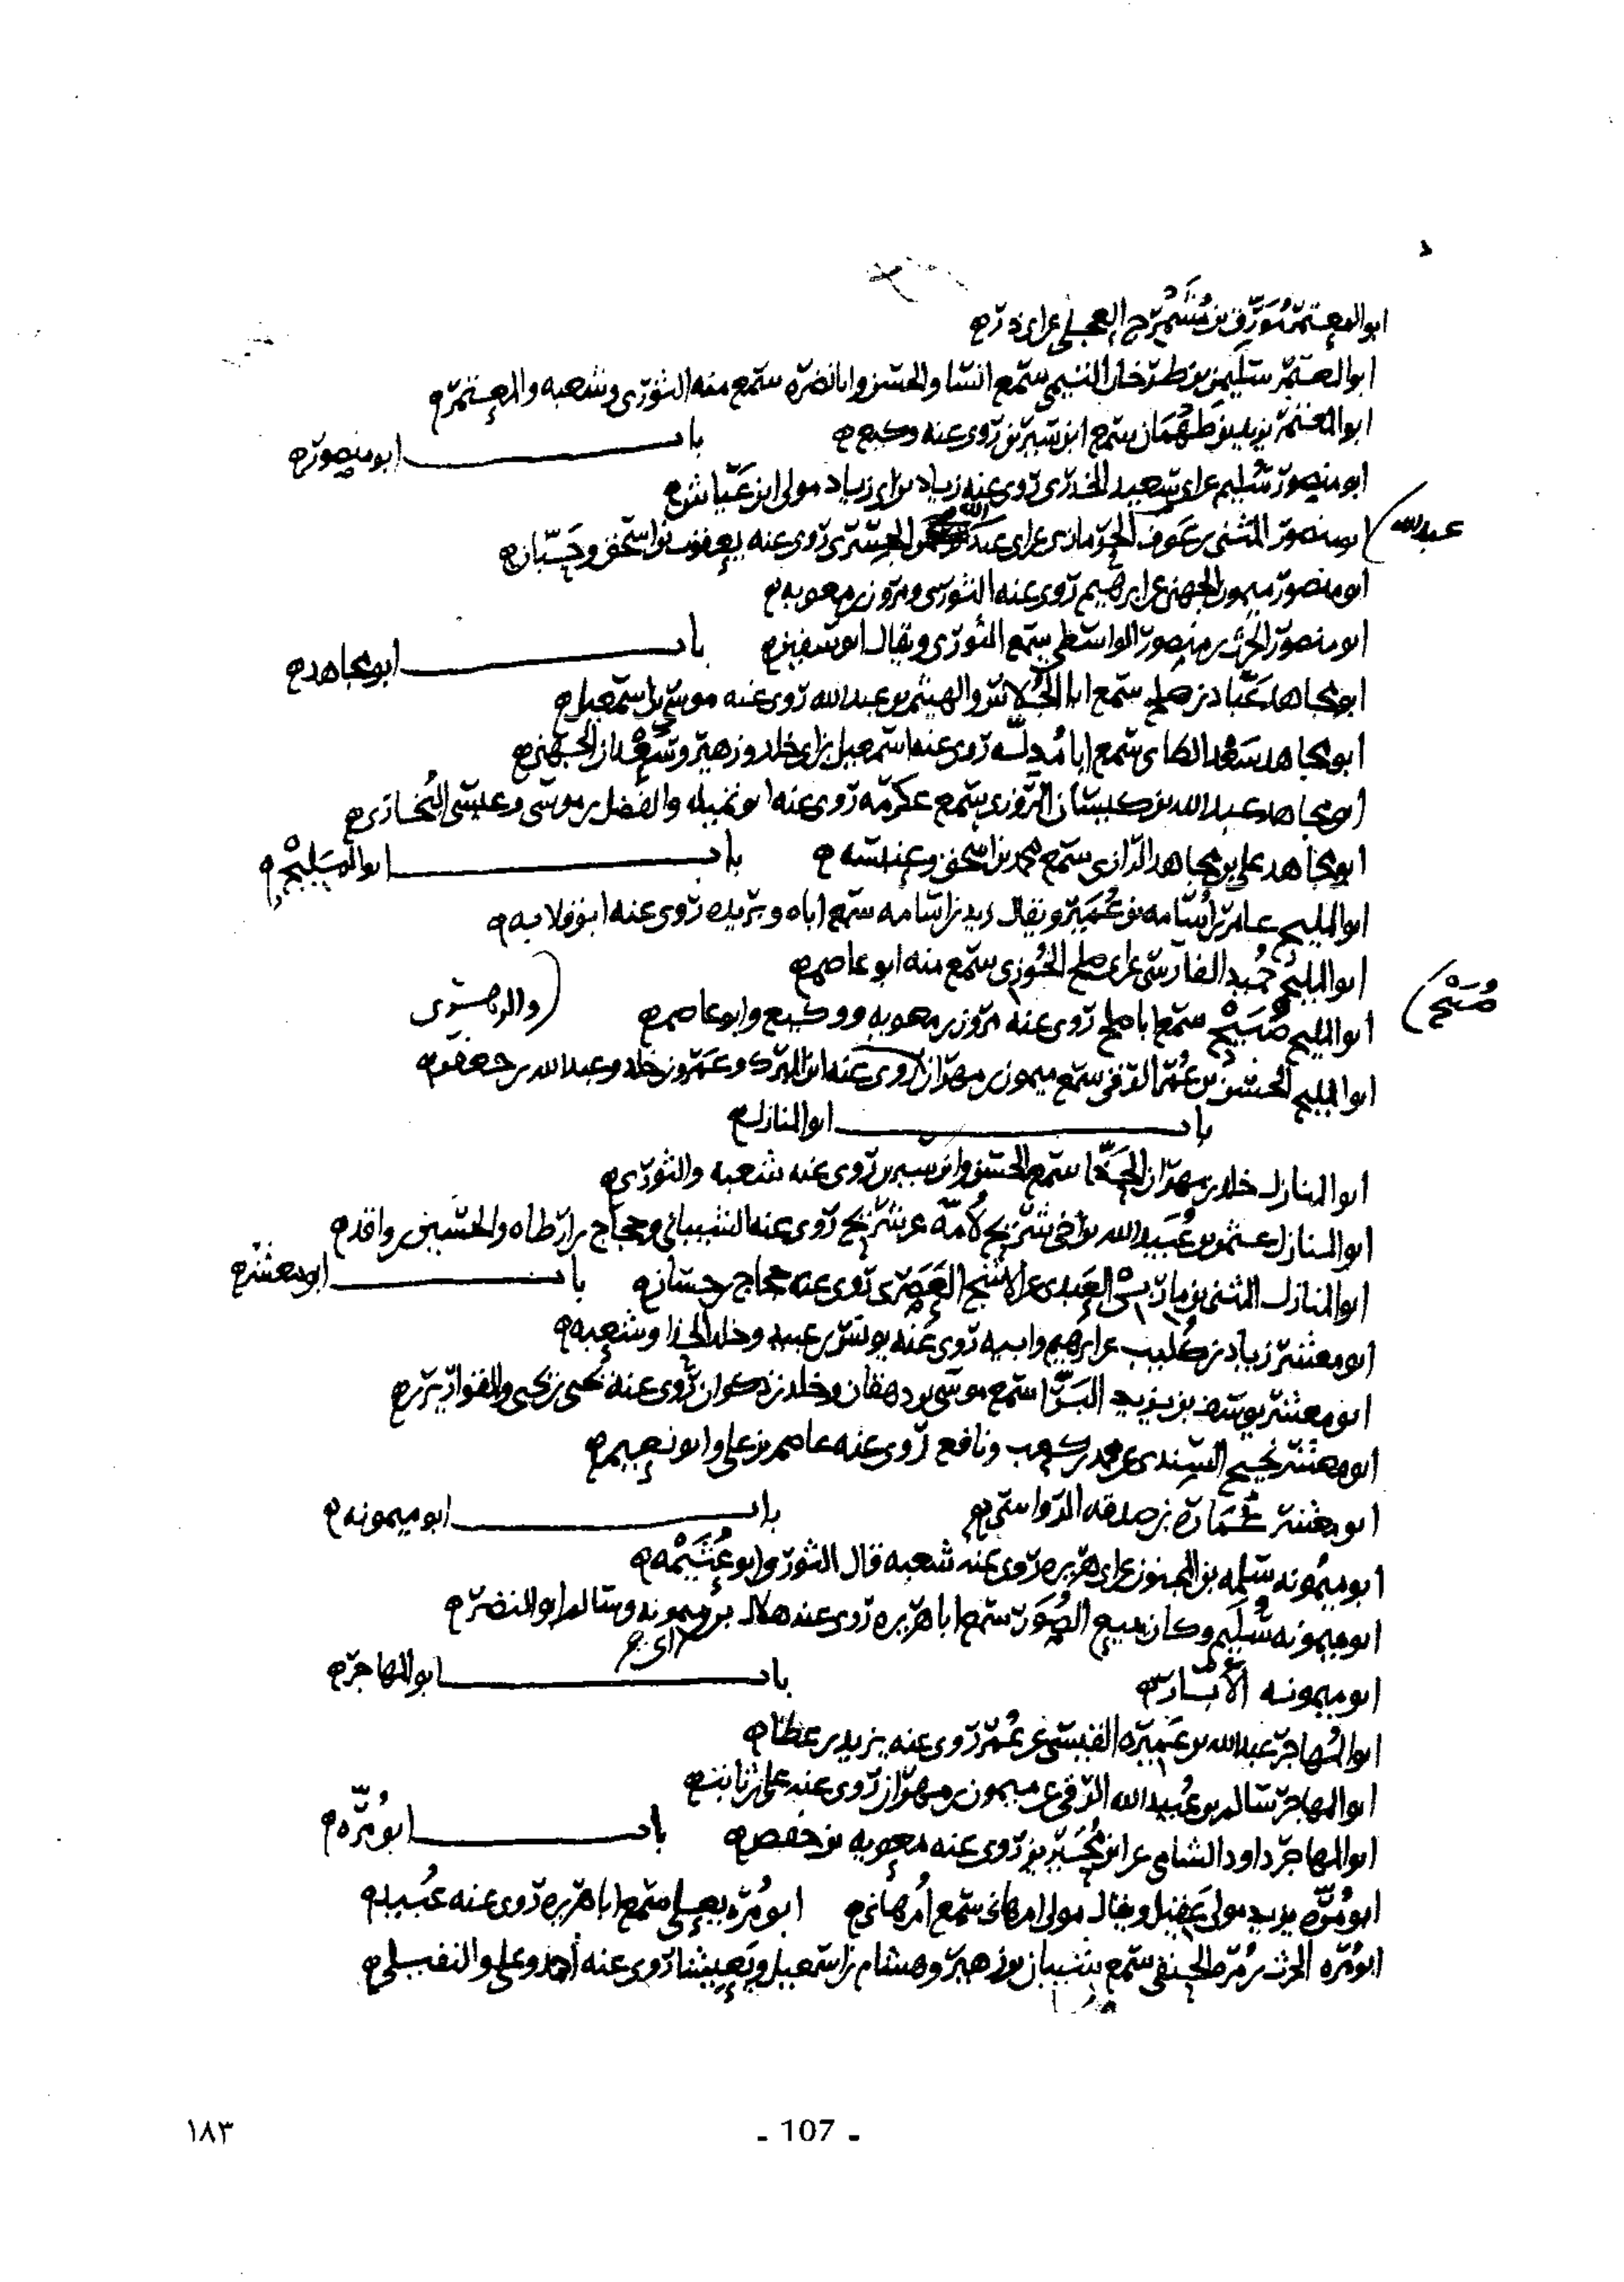 ابو المعتمر مُوَرِّق بن مُشَمْرَج العجلي عن ابي ذر
ابو المعتمر سليمن بن طرخان التيمي سمع انسا والحسن وابا نضره سمع منه الثوري وشعبه والمعتمر
ابو المعتمر يزيد بن طَهْمَان سمع ابن سيرين روى عنه وكيع باب ابو منصور
ابو منصور سُليم عن ابي سعيد الخدري روى عنه زياد بن ابي زياد مولى ابن عَيَّاش
ابو منصور المثنى بن عوف عن ابي عبد الله الجسري روى عنه يعقوب بن اسحق وحَسّان
عبد الله
ابو منصور ميمون الجهني عن ابرهيم روى عنه الثوري ومروان بن معويه
ابو منصور الحرث بن منصور الواسطي سمع الثوري ويقال ابو سفين باب ابو مجاهد
ابو مجاهد عَبّاد بن صلح سمع ابا الجُلاس والهيثم بن عبد الله روى عنه موسى بن اسمعيل
ابو مجاهد سَعْد الطاى سمع ابا مُدِلّه روى عنه اسمعيل بن ابي خلد وزهير وسَعْدان الجهني
ابو مجاهد عبد الله بن كيسان المروزي سمع عكرمه روى عنه ابو تميله والفضل بن موسى وعيسى البُخاري
ابو مجاهد علي بن مجاهد الرازي سمع محمد بن اسحق وعنبسه باب ابو المَلِيْح
ابو المليح عامر بن اُسَامه بن عُمَير ويقال زيد بن اسامه سمع اباه وبريده روى عنه ابو قلابه
ابو المليح حُميد الفارسي عن ابي صلح الخُوزي سمع منه ابو عاصم
ابو المليح صُبَيْح سمع ابا صلح روى عنه مروان بن معويه ووكيع وابو عاصم
صُبَيْح
ابو المليح الحسن بن عُمَر الرقي سمع ميمون بن مهران والزهري روى عنه ابن المبارك وعمرو بن خلد وعبد الله بن جعفر
باب ابو المنازل
ابو المنازل خلد بن مهران الحَذّا سمع الحسن وابن سيرين روى عنه شعبه والثوري
ابو المنازل عثمن بن عُبَيد الله بن اخي شُرَيح لأُمّه عن شُرَيح روى عنه الشيباني وحجاج بن ارطاه والحُسين بن واقد
ابو المنازل المثنى بن ماوي العبدي عن الاشج العَصَري روى عنه حجاج بن حسان باب ابو معشر
ابو معشر زياد بن كُليب عن ابرهيم وابيه روى عنه يونس بن عبيد وخلد الحذا وشعبه
ابو معشر يوسف بن يزيد البَرّا سمع موسى بن دهقان وخلد بن ذكوان روى عنه يحيى بن يحيى والقواريري
ابو معشر نجيح السندي عن محمد بن كعب ونافع روى عنه عاصم بن علي وابو نعيم
ابو معشر عُمَارة بن صدقه الرواسي باب ابو ميمونه
ابو ميمونه سلمه بن المجنون عن ابي هريره روى عنه شعبه قال الثوري ابو عُثَيْمه
ابو ميمونه سُلَيم وكان يبيع الصُوَر سمع ابا هريره روى عنه هلال بن ابي ميمونه وسالم ابو النضر
ابو ميمونه الأبّار باب ابو المهاجر
ابو المُهاجر عبد الله بن عَمِيره القيسي عن عُمر روى عنه يزيد بن عطا
ابو المهاجر سالم بن عُبيد الله الرقي عن ميمون بن مهران روى عنه علي بن ثابت
ابو المهاجر داود الشامي عن ابن مُحَيريز روى عنه معويه بن حفص باب ابو مُرّه
ابو مُرّه يزيد مولى عَقيل ويقال مولى ام هاني سمع اُم هاني ابو مُرّه يعلى سمع ابا هريره روى عنه عُبيد
ابو مُرّه الحرث بن مُرّه الحنفي سمع شيبان بن زهير وهشام بن اسمعيل ويَعيشا روى عنه أحمد وعلي والنفيلي
١٨٣ - 107 -